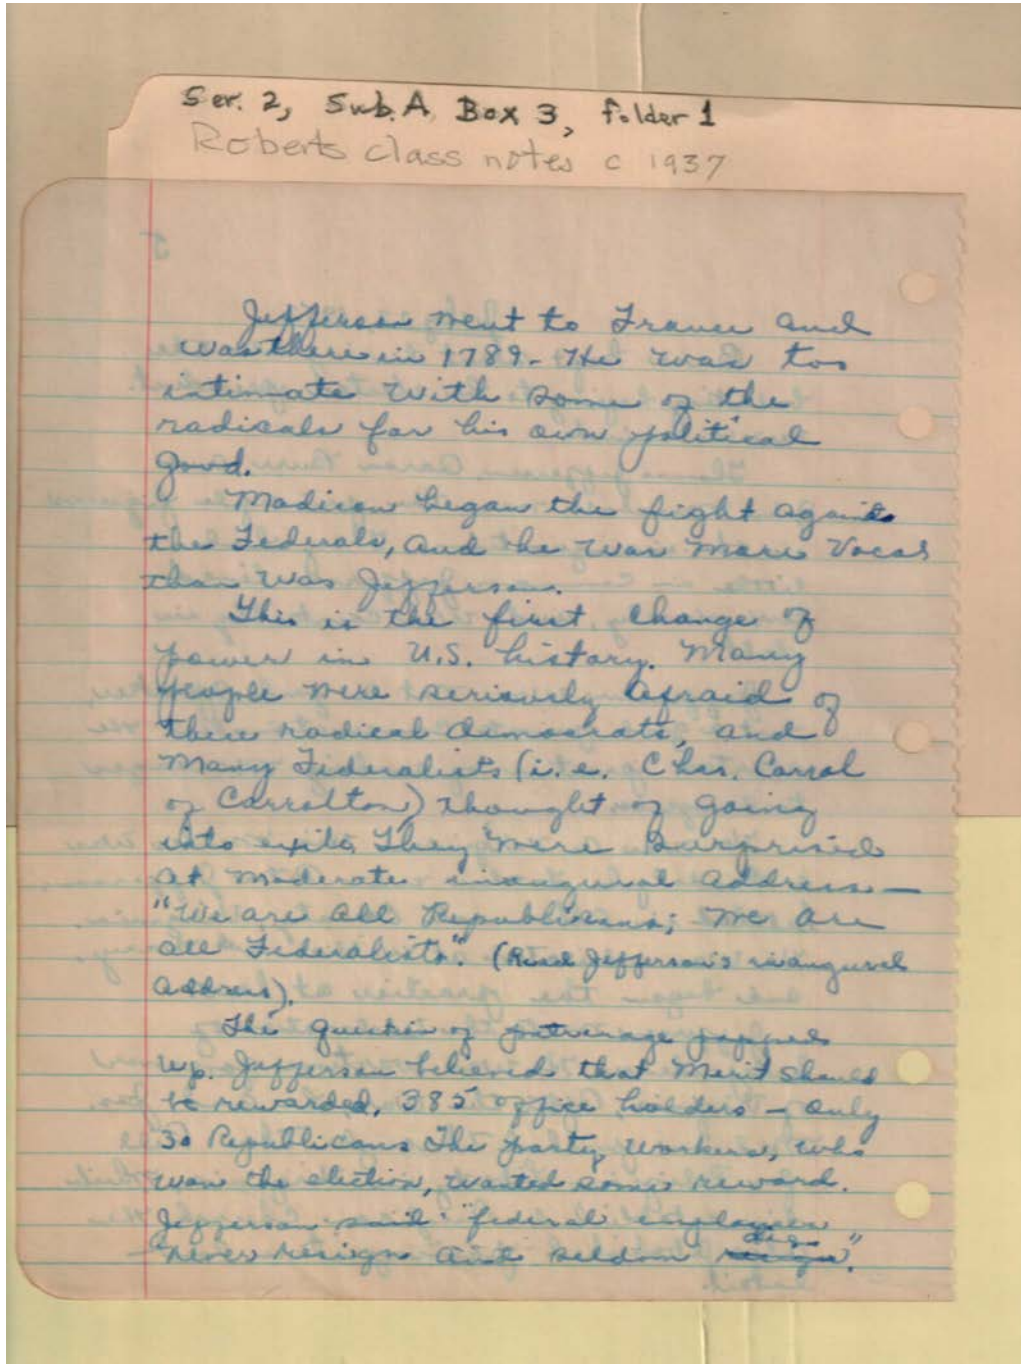 Ser. 2, Sub. A Box 3, folder 1
Roberts class notes c 1937
5
Jefferson went to France and
was there in 1789 - He was too
intimate with some of the
radicals for his own political
good.
Madison began the fight against
the Federals, and he was more vocal
than was Jefferson.
This is the first change of
power in U.S. history. Many
people were seriously afraid of
these radical democrats, and
many Federalists (i.e. Chas. Carrol
of Carrolton) thought of going
into exile. They were surprised
at moderate inaugural address —
"We are all Republicans; we are
all Federalists". (Read Jefferson's inaugural
address).
The question of patronage popped
up. Jefferson believed that merit should
be rewarded, 385 office holders - only
30 Republicans The party workers, who
won the election, wanted some reward.
Jefferson said "federal employees
never resign and seldom die".